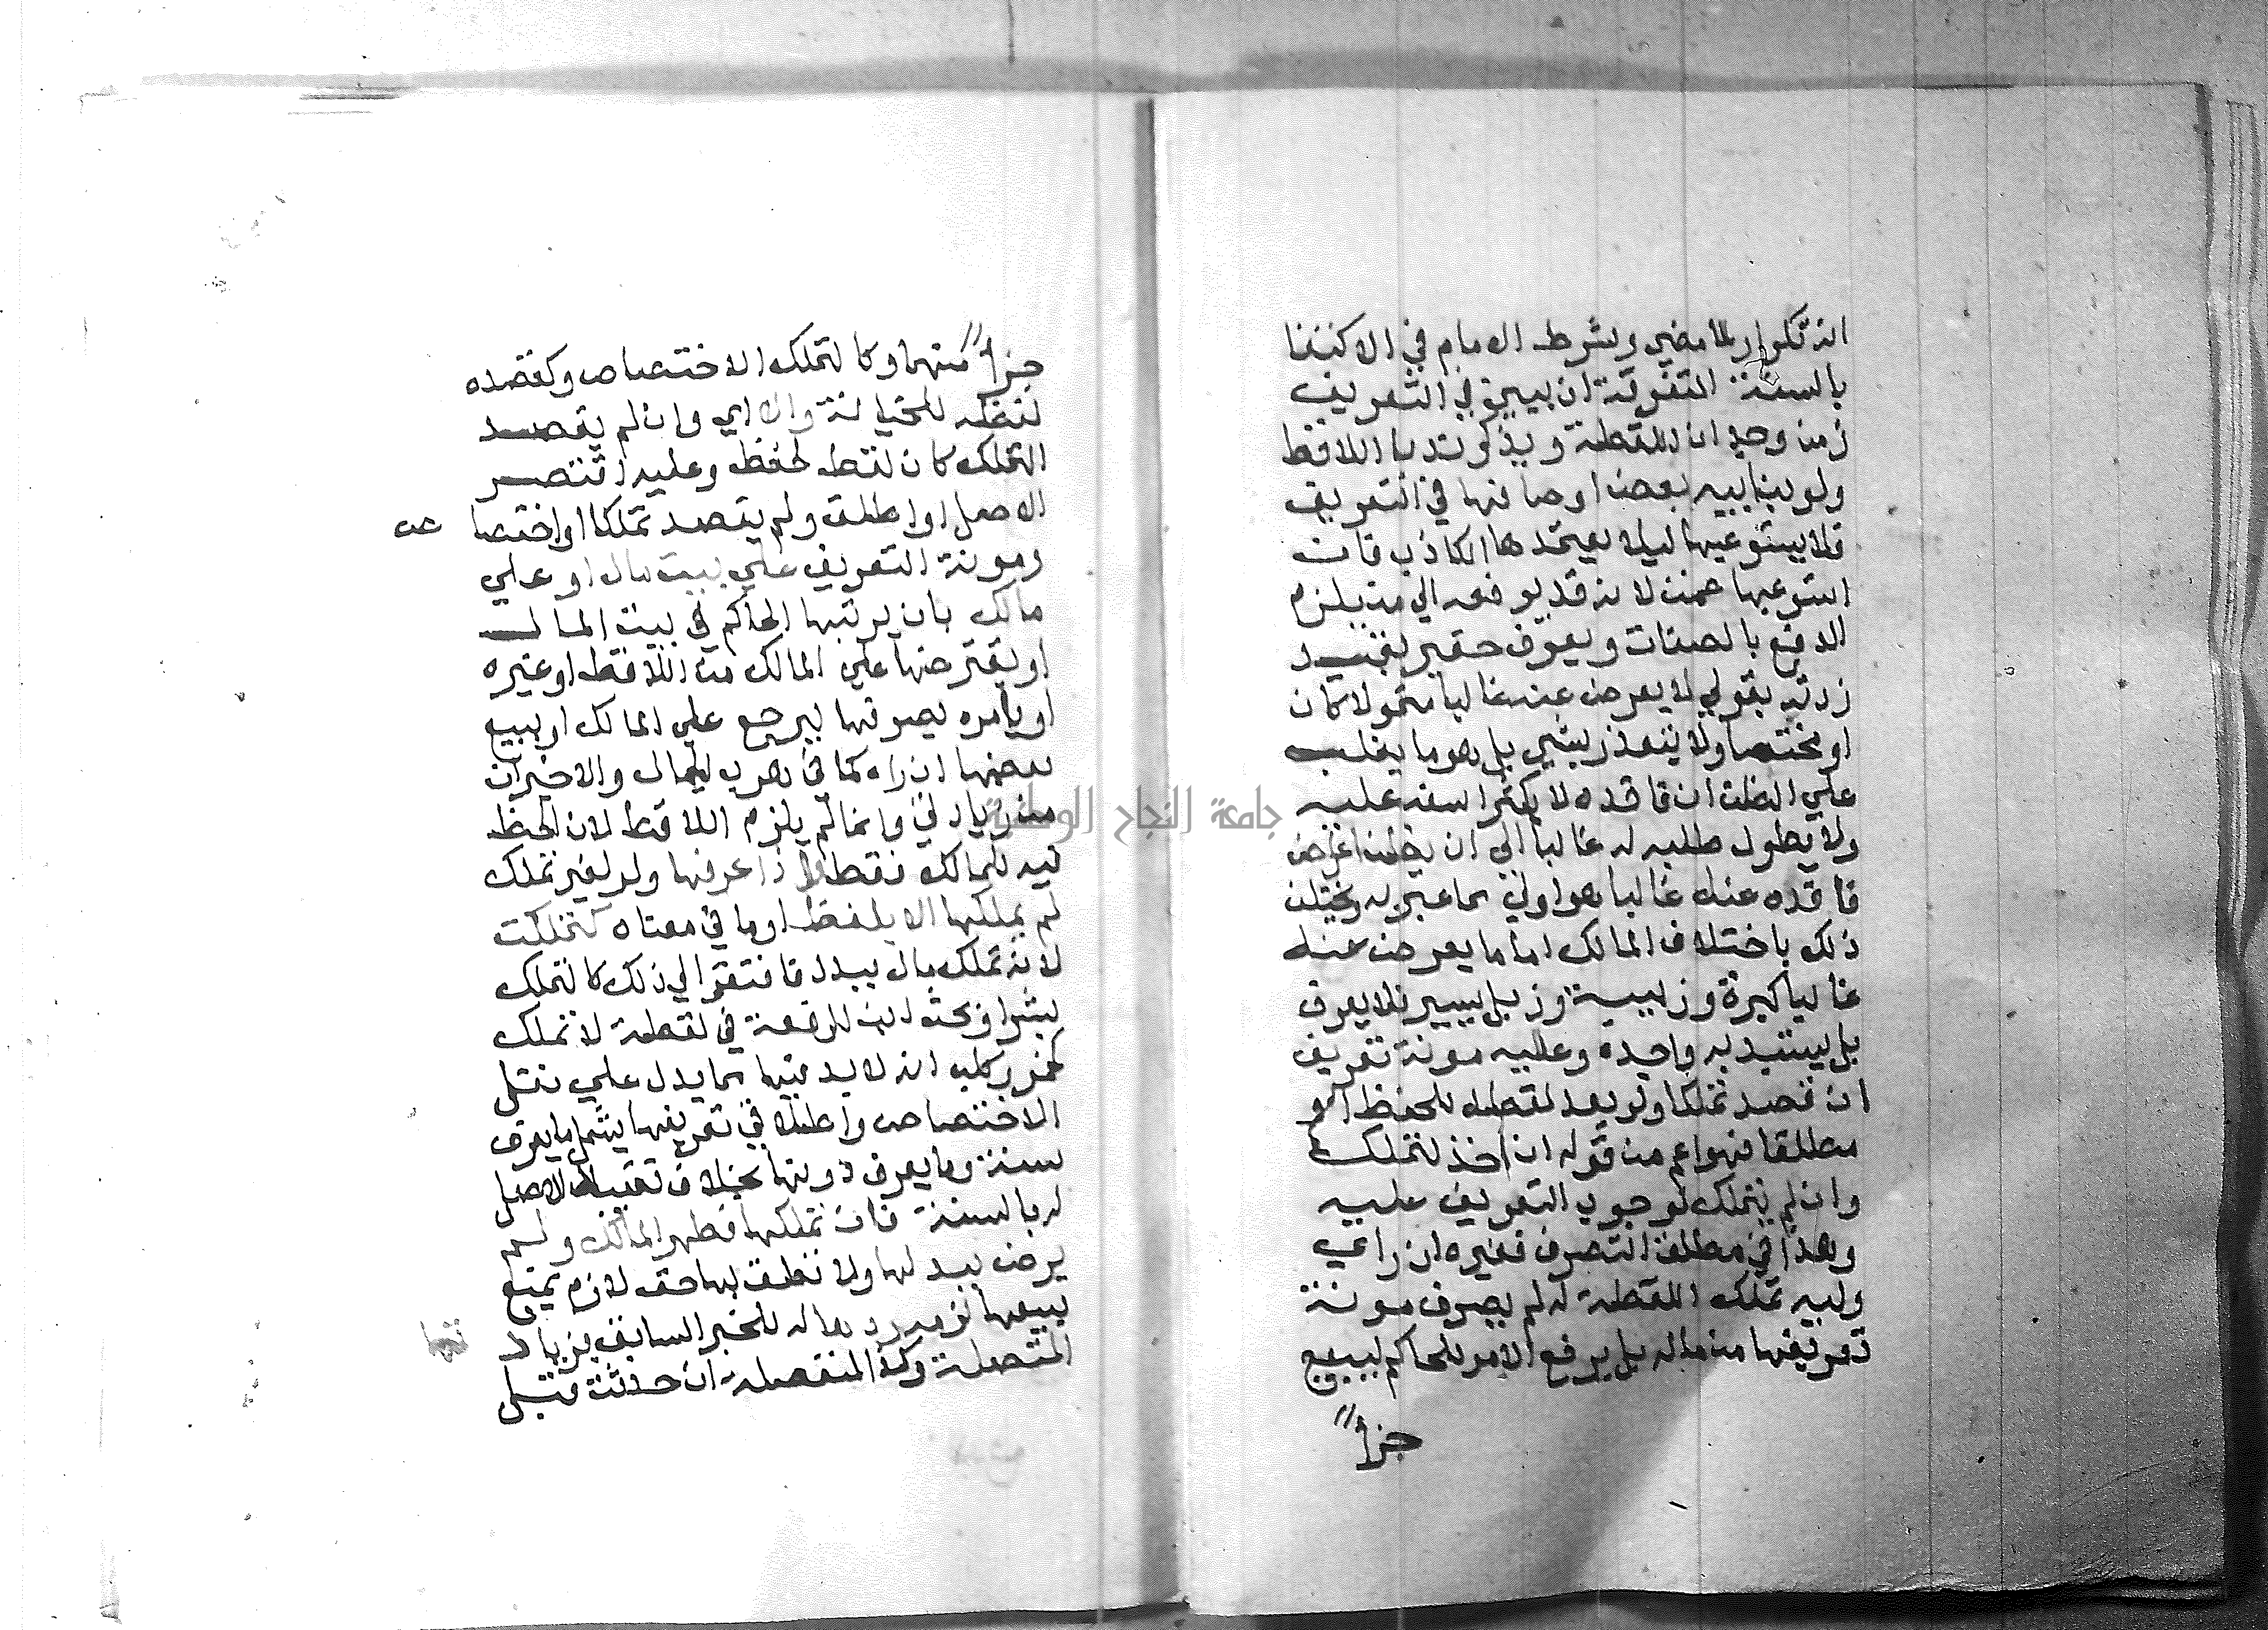 انه تكرار لما مضي وبشرط الامام في الاكتفا
بالسنة المتفرقة ان يبين في التعريف
زمن وجدان اللقطة ويذكر ندبا اللاقط
ولو بنايبه بعض اوصافها في التعريف
فلا يستوعبها ليلا يعتمدها الكاذب فان
استوعبها ضمن لانه قد يرفعه الي من يلزم
الدفع بالصفات ويعرف حقير بقيد
زدته بقولي لا يعرض عنه غالبا متمولا كان
او مختصا ولا يتقدر بشي بل هو ما يغلب
علي الظن ان فاقده لا يكثر اسفه عليه
ولا يطول طلبه له غالبا الي ان يظن اعراض
فاقده عنه غالبا هو اولي مما عبر به ويختلف
ذلك باختلاف المالك اما ما يعرض عنه
غالبا كبرة وزبيبة وزبل يسير فلا يعرف
بل يستبد به واجده وعليه مونة تعريف
ان قصد تملكا ولو بعد لقطه للحفظ او
مطلقا فهو اعم من قوله ان اخذ لتملك
وان لم يتملك لوجوب التعريف عليه
وهذا في مطلق التصرف فغيره ان راي
وليه تملك اللقطة له لم يصرف مونة
تعريفها من ماله بل يرفع الامر للحاكم ليبيع
جزأ
جزأ منها وكالتملك الاختصاص وكقصده
لقطه للخيانة والا اي وان لم يقصد
التملك كان لقط لحفظ وعليه اقتصر
الاصل او اطلق ولم يقصد تملكا او اختصا ص
فمونة التعريف علي بيت مال او علي
مالك بان يرتبها الحاكم في بيت المال
او يقترضها علي المالك من اللاقط او غيره
او يامره بصرفها ليرجع علي المالك او يبيع
بعضها ان راه كما في هرب الجمال والاخيران
من زيادتي وانما لم يلزم اللاقط لان الحظ
فيه للمالك فقط واذا عرفها ولو لغير تملك
لم يملكها الا بلفظ او ما في معناه كتملكت
لانه تملك مال ببدل فافتقر الي ذلك كالتملك
بشرا وبحث ابن الرفعة في لقطة لا تملك
كخمر وكلب انه لا بد فيها مما يدل علي نقل
الاختصاص واطلاقي تعريفها يشمل ما يعرف
سنة وما يعرف دونها بخلاف تقييد الاصل
له بالسنة فان تملكها فظهر المالك ولم
يرض ببدلها ولا تعلق بها حق لازم يمنع
بيعها لزمه ردها له للخبر السابق بزيادتها
المتصلة وكذا المنفصلة ان حدثت قبل
جامعة النجاح الوطنية